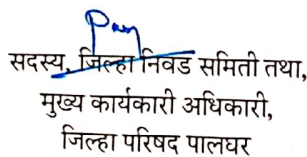 सदस्य, जिल्हा निवड समिती तथा,
मुख्य कार्यकारी अधिकारी,
जिल्हा परिषद पालघर